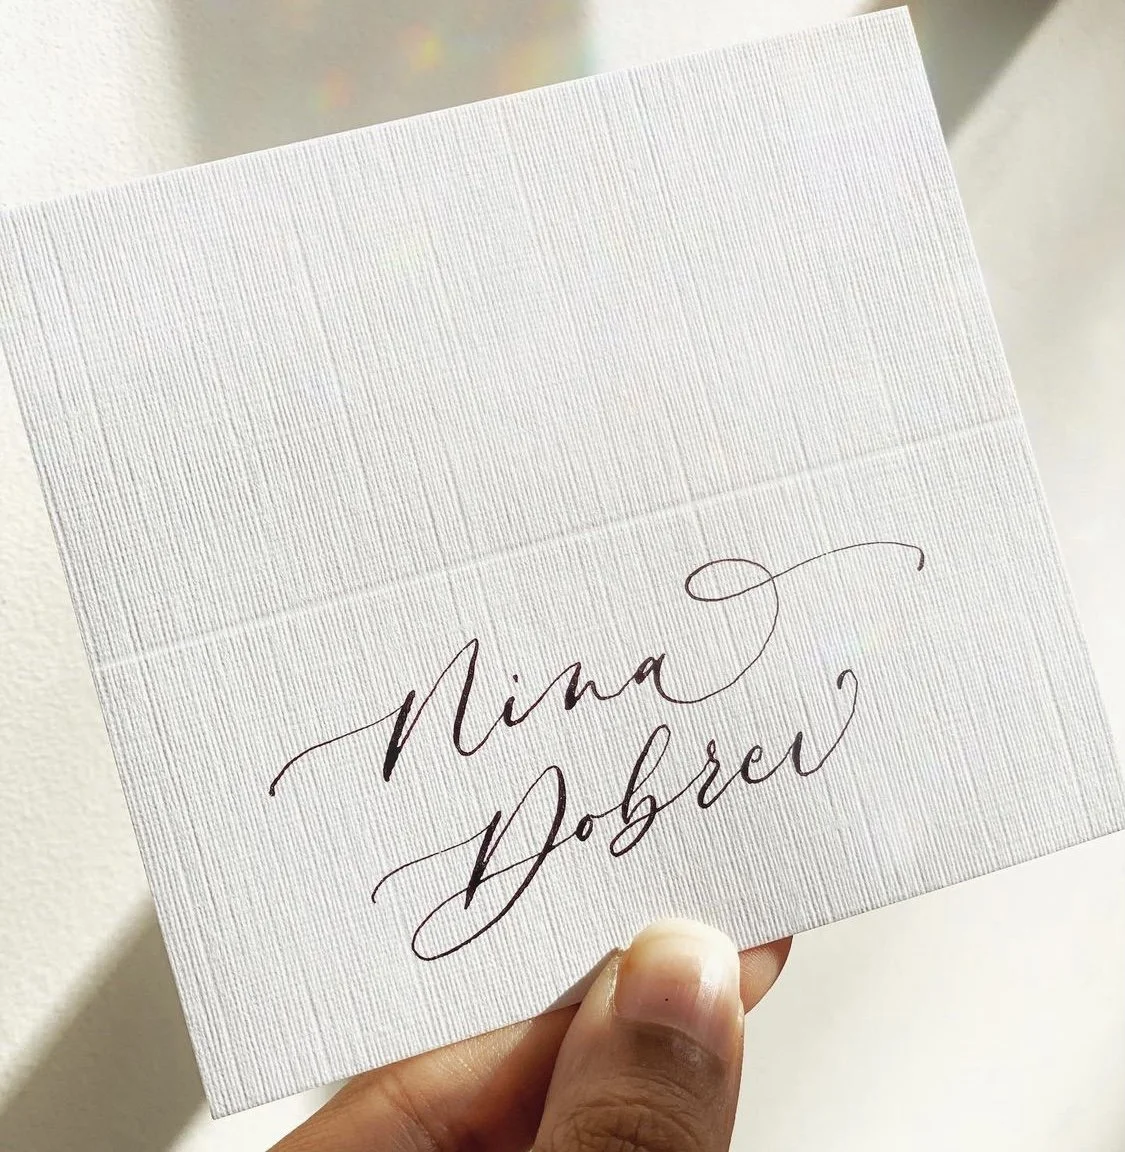 Nina
Dobrev